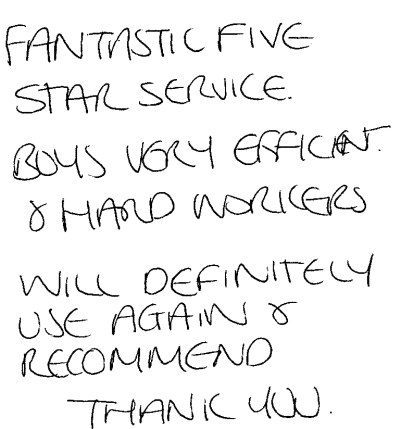 FANTASTIC FIVE
STAR SERVICE.
BOYS VERY EFFICIENT.
& HARD WORKERS
WILL DEFINITELY
USE AGAIN &
RECOMMEND
THANK YOU.